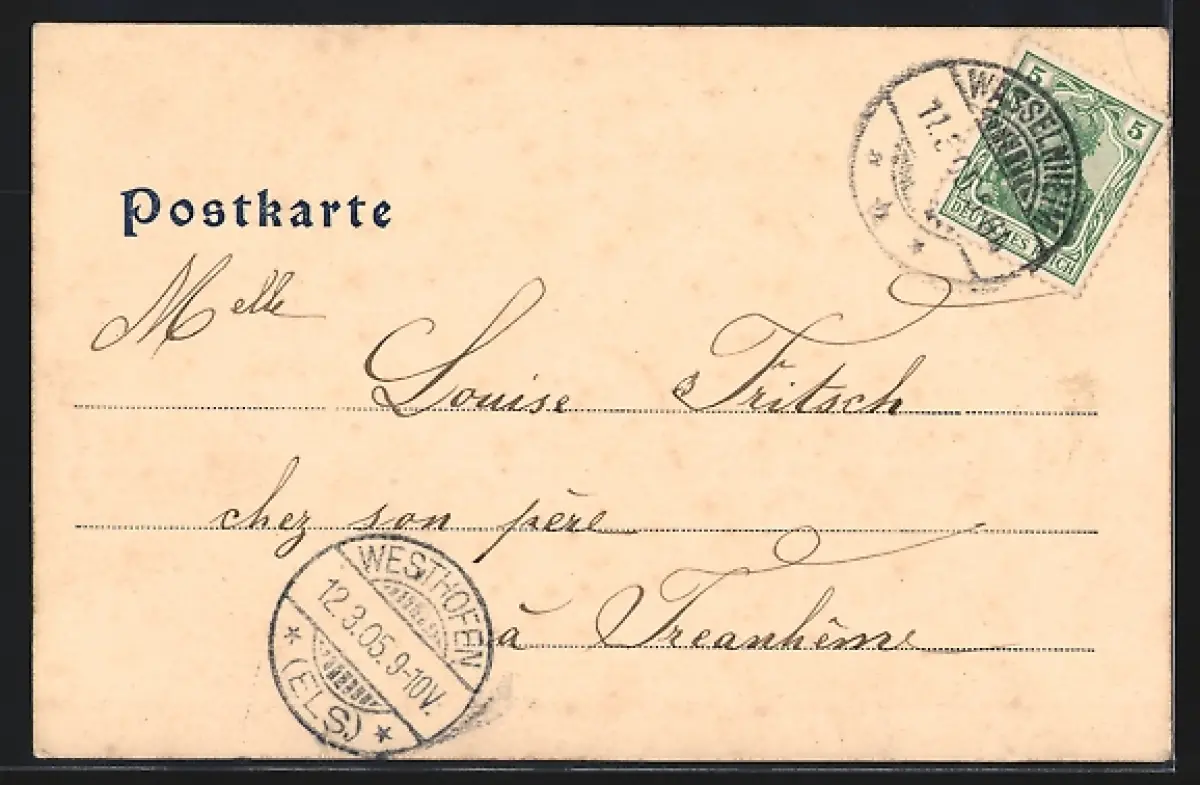 Postkarte
WASSELNHEIM
5 5
DEUTSCHES REICH
Melle
Louise Fritsch
chez son père
à Treanhême
WESTHOFEN
12.3.05. 9-10V.
* (ELS) *